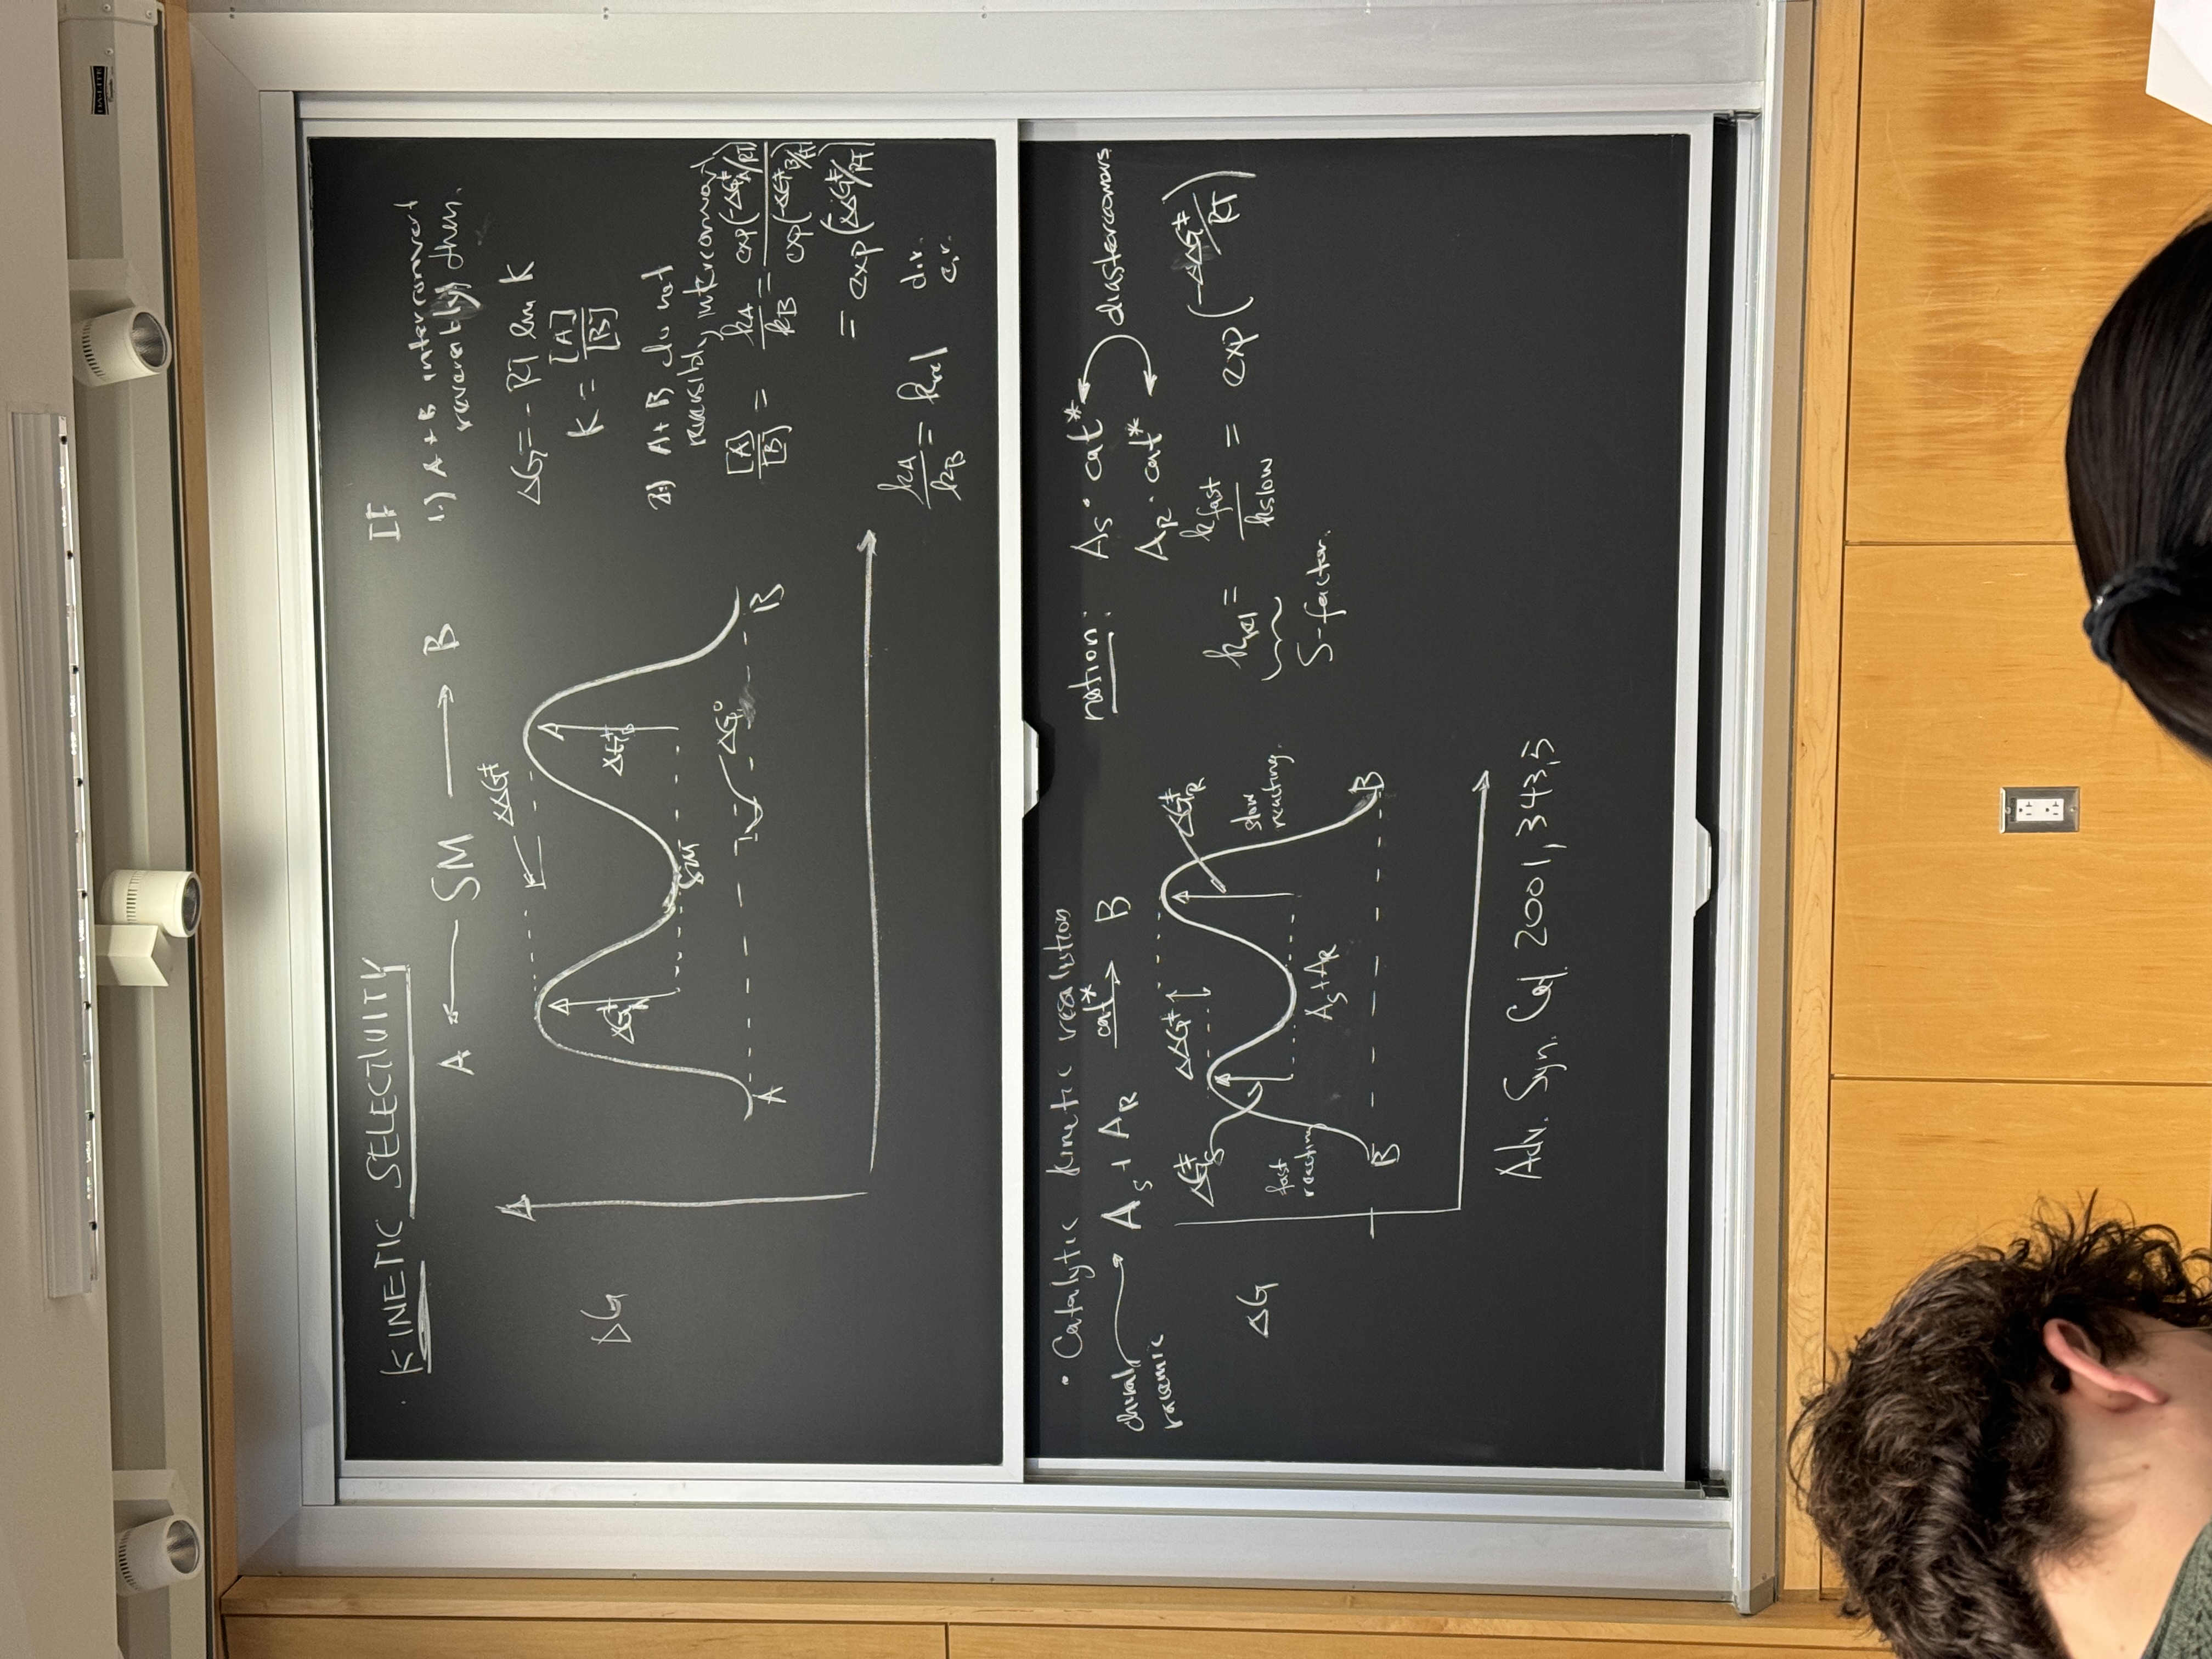 DA-LITE
KINETIC SELECTIVITY
A ← SM → B
ΔΔG‡
ΔG
ΔG‡A
ΔG‡B
SM
ΔG°
A
B
IF
1.) A + B interconvert
reversibly, then.
ΔG = - RT ln K
K = [A]/[B]
2.) A + B do not
reversibly interconvert
[A]/[B] = kA/kB = exp(-ΔG‡A/RT)/exp(-ΔG‡B/RT)
= exp(-ΔΔG‡/RT)
kA/kB = krel
d.r.
e.r.
• Catalytic kinetic resolution
chiral,
racemic
AS + AR cat* → B
ΔG‡S
ΔΔG‡
ΔG‡R
ΔG
fast
reacting
slow
reacting.
AS + AR
B
B
Adv. Syn. Cat. 2001, 343, 5
notion: AS · cat*
AR · cat*
diastereomers
krel = kfast/kslow = exp(-ΔΔG‡/RT)
S-factor.